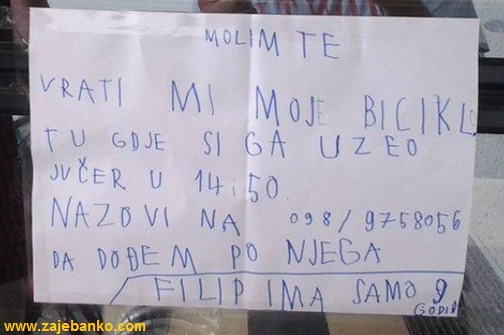 MOLIM TE
VRATI MI MOJE BICIKL
TU GDJE SI GA UZEO
JUČER U 14:50
NAZOVI NA 098/9758056
DA DOĐEM PO NJEGA
FILIP IMA SAMO 9
GODIN
www.zajebanko.com